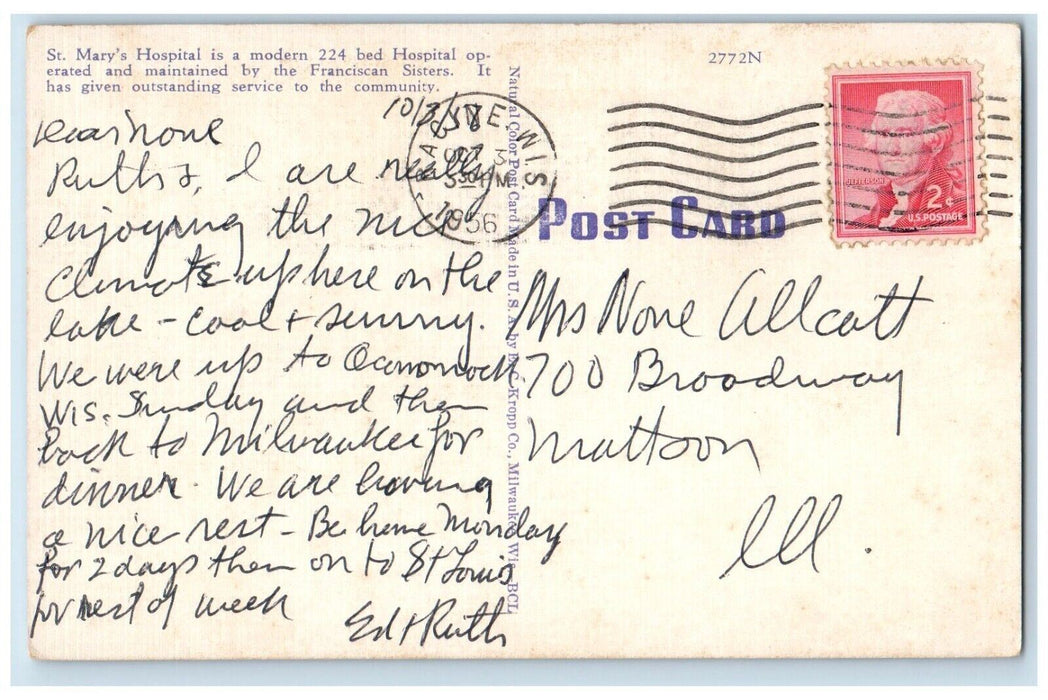 St. Mary's Hospital is a modern 224 bed Hospital op-
erated and maintained by the Franciscan Sisters. It
has given outstanding service to the community.
2772N
10/3/56
RACINE, WIS.
OCT 3
330 PM
1956
JEFFERSON
2¢
U.S. POSTAGE
POST CARD
Natural Color Post Card Made in U.S.A. by E. C. Kropp Co., Milwaukee, Wis. BCL
Dear None
Ruth &, I are really
enjoying the nice
climate up here on the
lake - cool & sunny.
We were up to Oconomock
Wis. Sunday and then
back to Milwaukee for
dinner. We are having
a nice rest - Be home Monday
for 2 days then on to St Louis
for rest of week
Ed & Ruth
Mrs None Allcatt
700 Broadway
Mattoon
Ill.